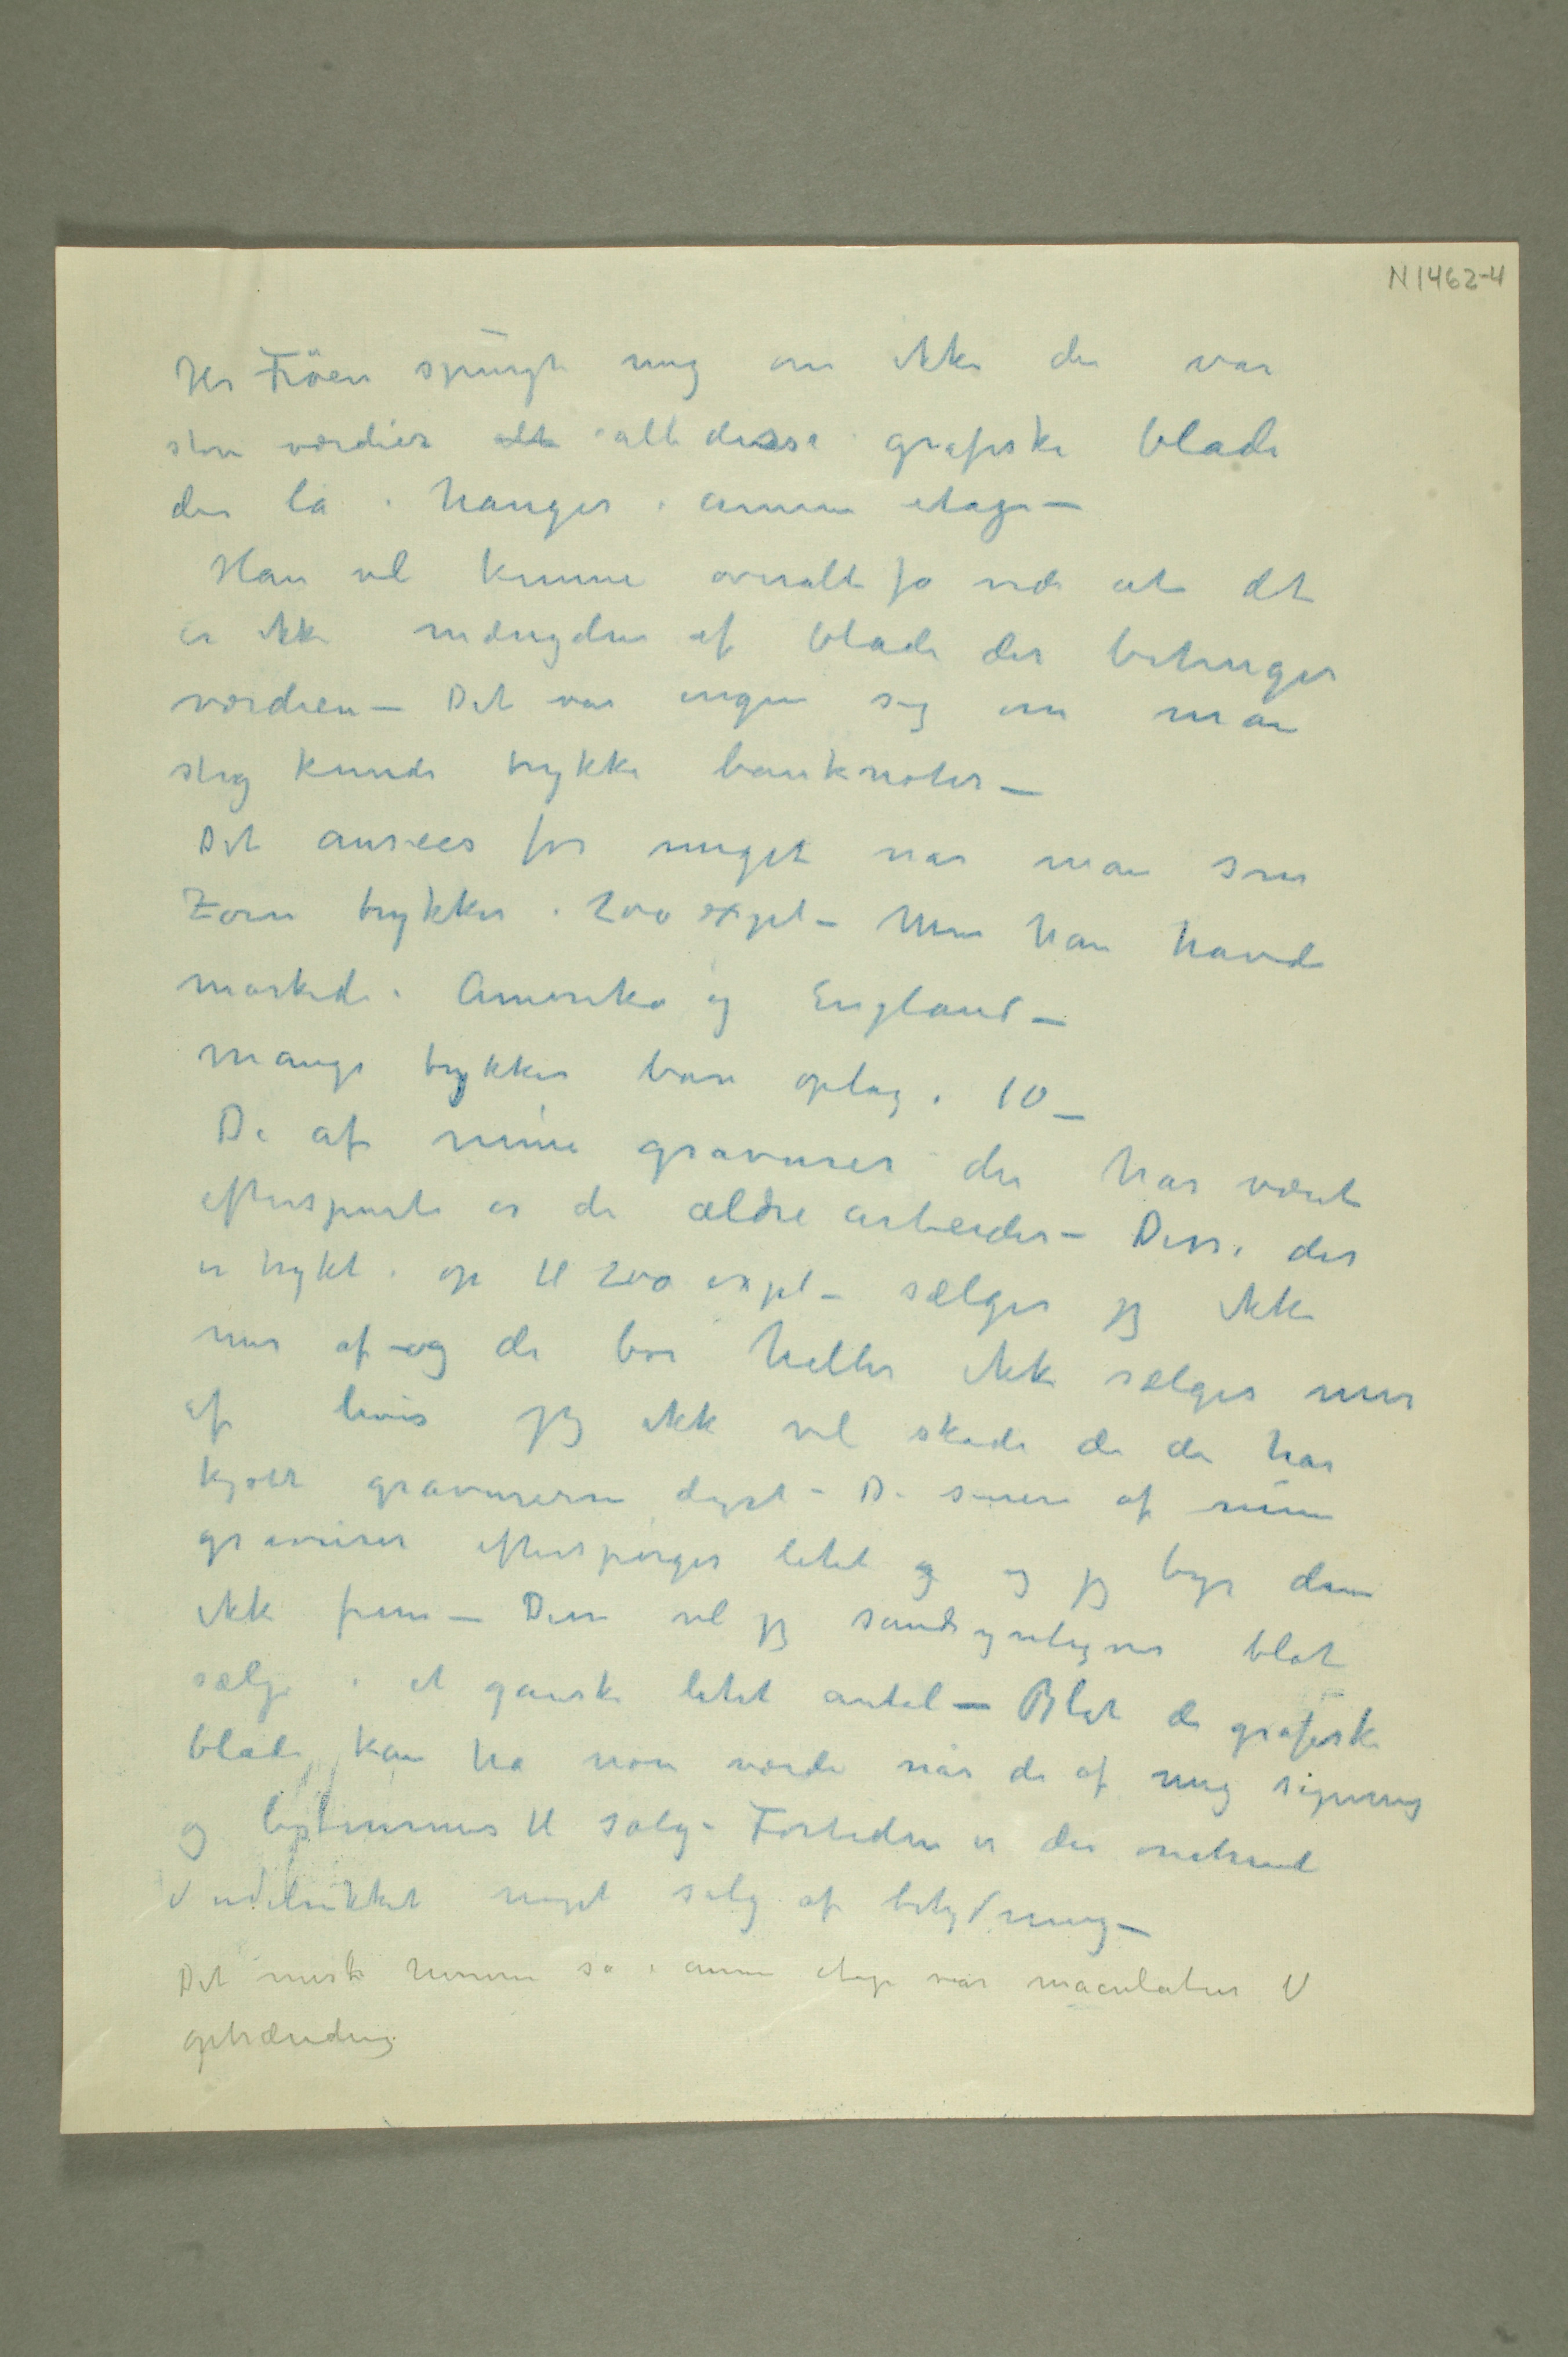 N1462-4
Hr Fröen spurgte mig om ikke der var
store værdier alt i alle disse grafiske blade
der lå i hauger i annen etage –
Han vil kunne overalt få vide at det
er ikke mængden af blade der betinger
værdien – Det var ingen sag om man
slig kunde trykke banknoter –
Det ansees for meget når man som
Zorn trykker i 200 expl – Men han havde
markede i Amerika og England –
Mange trykker bare oplag i 10 –
De af mine gravurer der har været
efterspurte er de ældre arbeider – Disse der
er trykt i op til 200 expl – sælger jeg ikke
mer af – og de bør heller ikke sælges mer
af hvis jeg ikke vil skade de der har
kjøbt gravurerne dyrt – De senere af mine
gravurer efterspørges litet og og jeg byr dem
ikke frem – Disse vil jeg sandsynligvis blot
sælge i et ganske litet antal – Blot de grafiske
blade kan ha noen værdi når de af mig signeres
og bestemmes til salg – Fortiden er der omtrent
udelukket noget salg af betydning –
Det meste herrene så i annen etage var maculatur til
optrænding